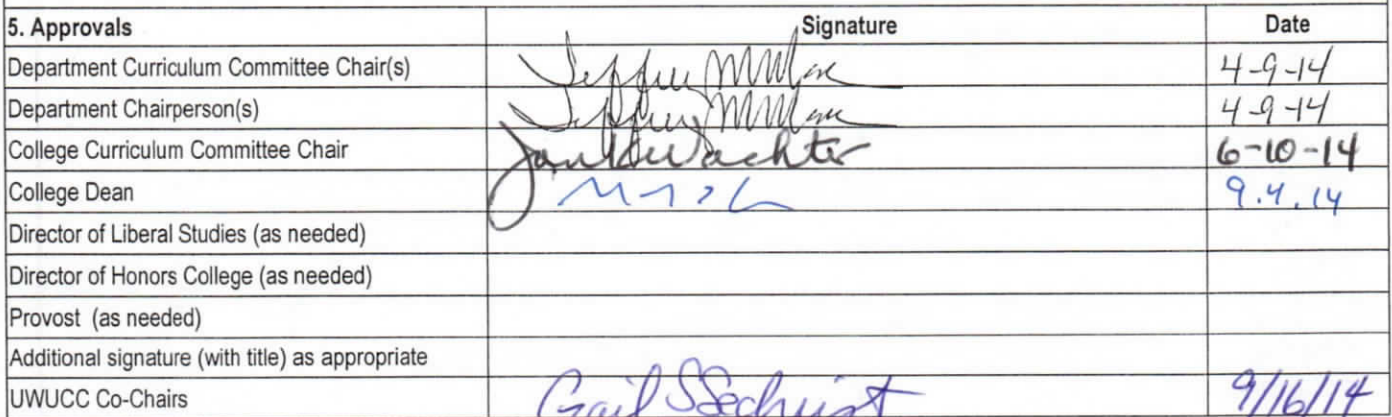 5. Approvals Signature Date
Department Curriculum Committee Chair(s) Jeffrey 4-9-14
Department Chairperson(s) Jeffrey 4-9-14
College Curriculum Committee Chair Wachter 6-10-14
College Dean 9.4.14
Director of Liberal Studies (as needed)
Director of Honors College (as needed)
Provost (as needed)
Additional signature (with title) as appropriate
UWUCC Co-Chairs Gail S Sechrist 9/16/14